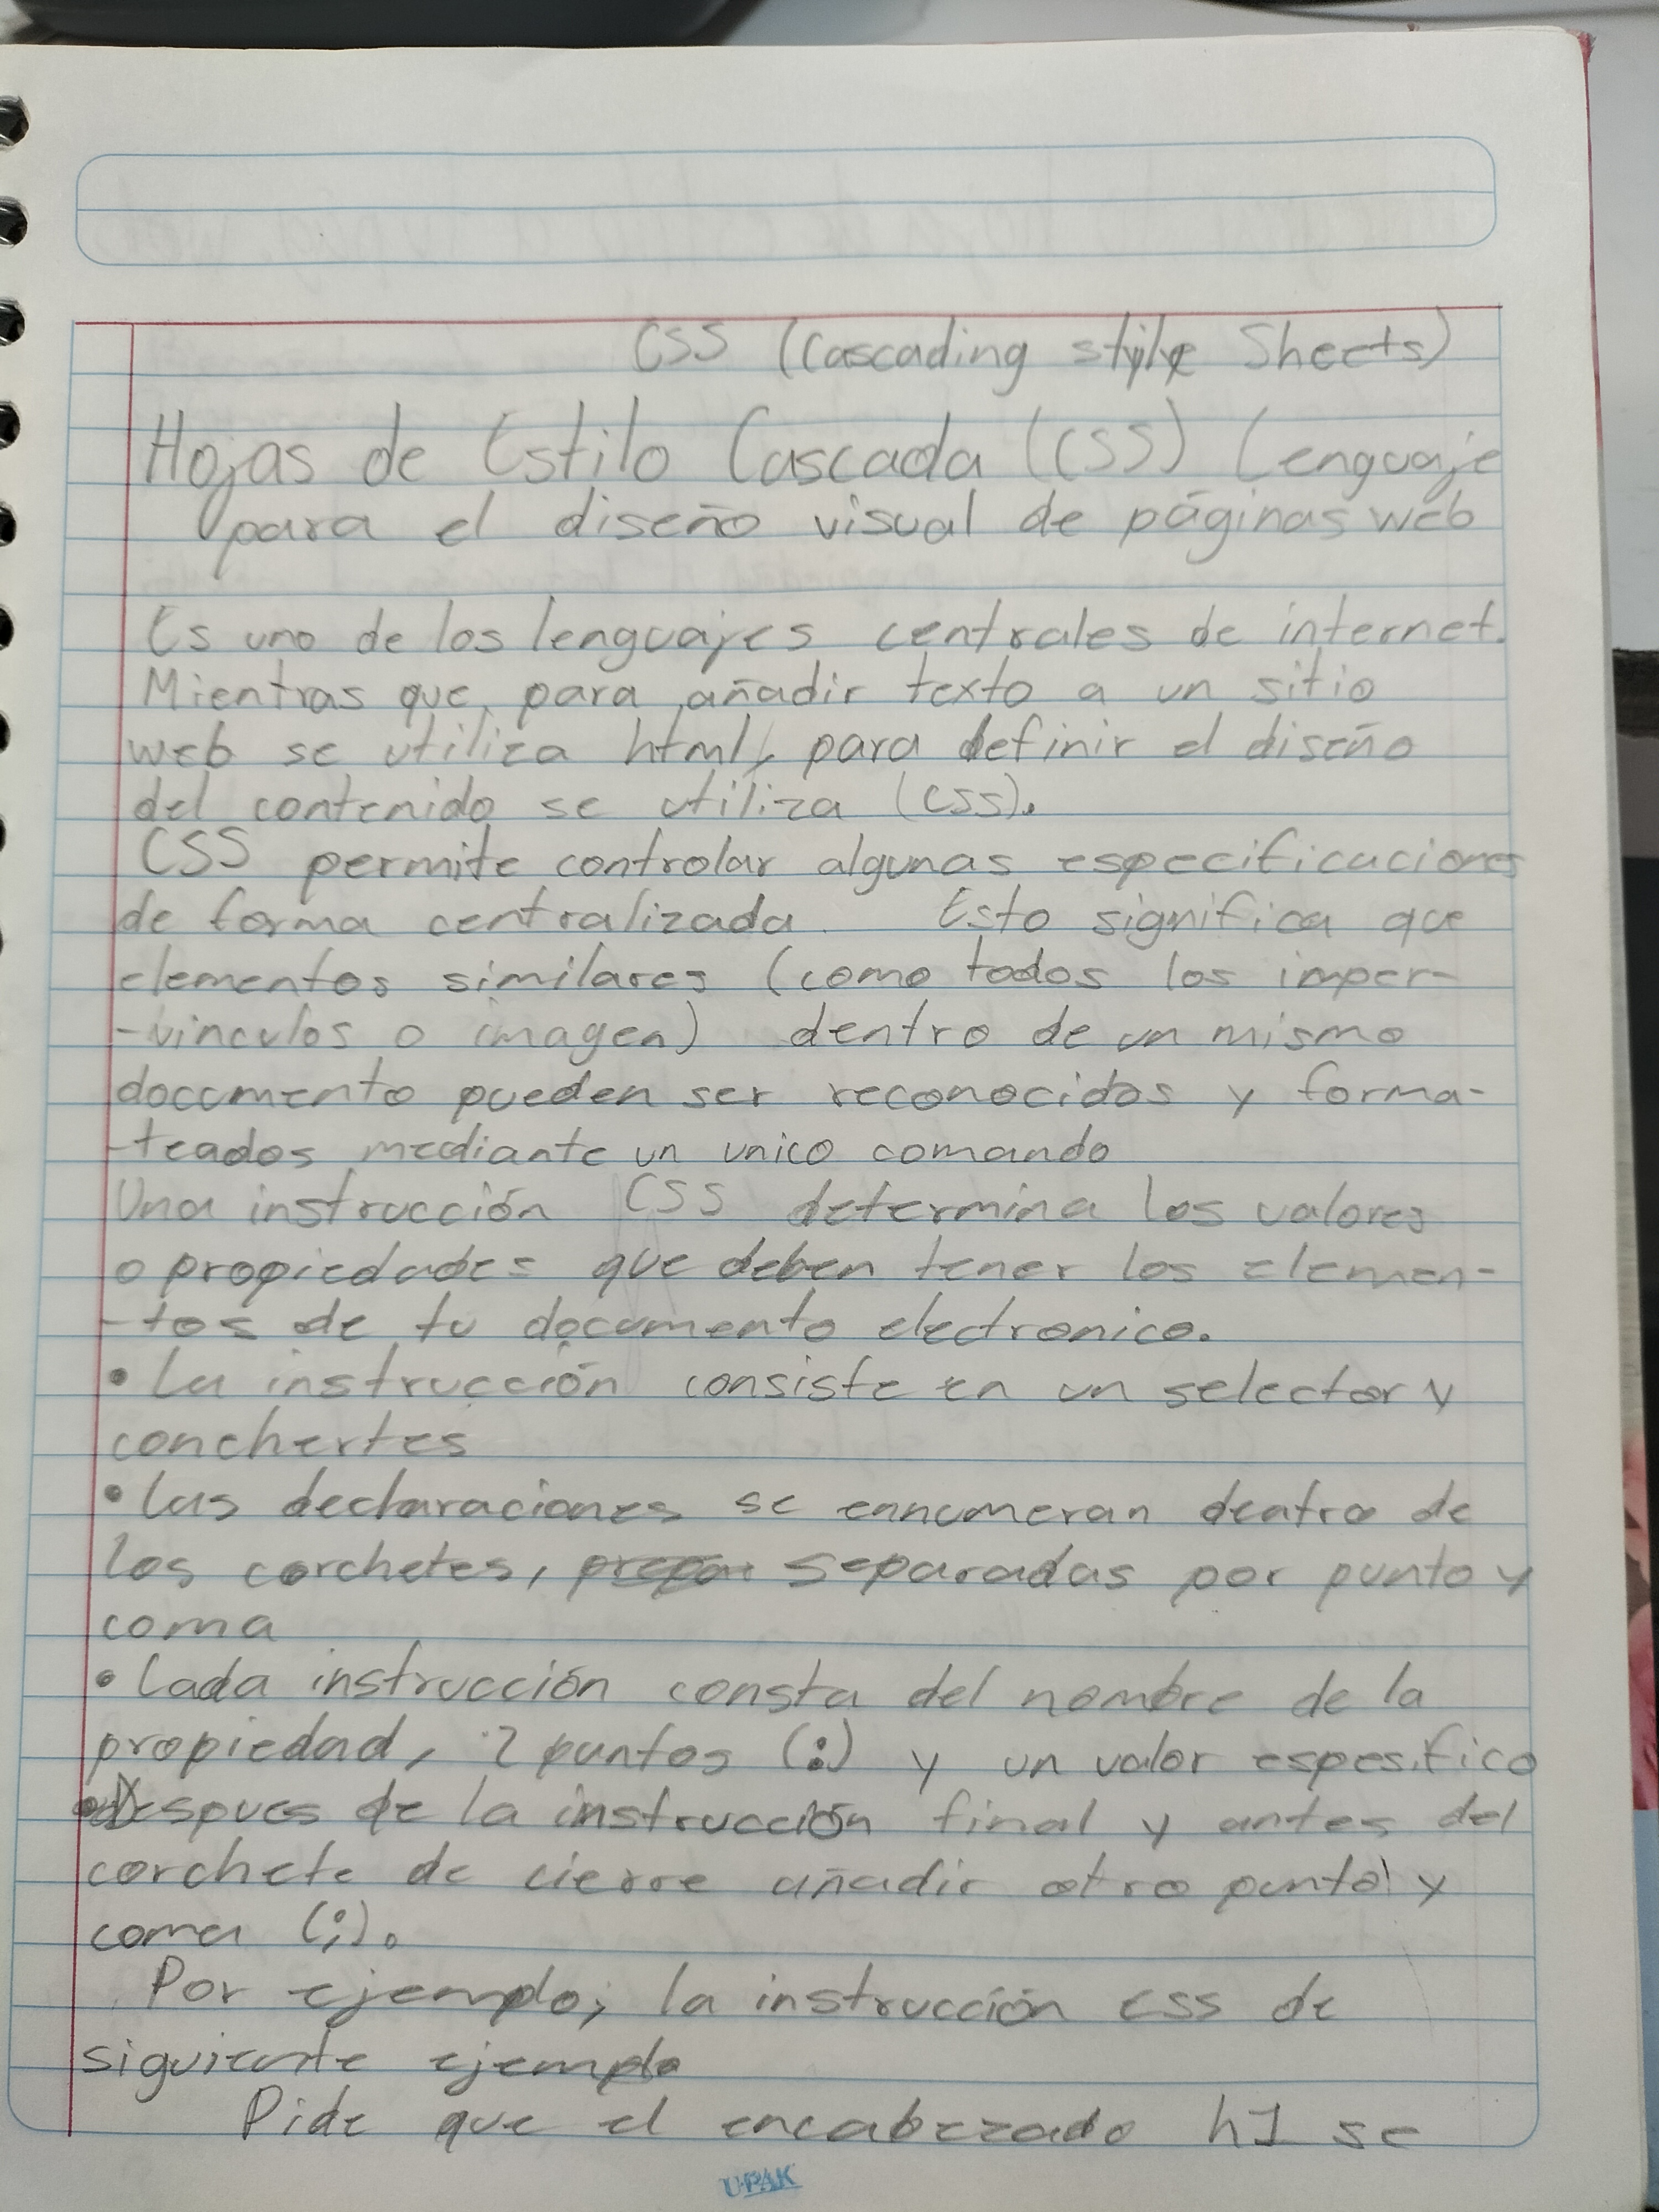 CSS (Cascading style Sheets)
Hojas de Estilo Cascada (CSS) Lenguaje
para el diseño visual de páginas web
Es uno de los lenguajes centrales de internet.
Mientras que, para añadir texto a un sitio
web se utiliza html, para definir el diseño
del contenido se utiliza (CSS).
CSS permite controlar algunas especificaciones
de forma centralizada. Esto significa que
elementos similares (como todos los imper-
-vinculos o imagen) dentro de un mismo
documento pueden ser reconocidos y forma-
-teados mediante un unico comando
Una instrucción CSS determina los valores
o propiedades que deben tener los elemen-
-tos de tu documento electronico.
• La instrucción consiste en un selector y
conchertes
• Las declaraciones se ennumeran dentro de
los corchetes, separadas por punto y
coma
• Cada instrucción consta del nombre de la
propiedad, 2 puntos (:) y un valor espesifico
• Despues de la instrucción final y antes del
corchete de cierre añadir otro punto y
coma (;).
Por ejemplo, la instrucción css de
siguiente ejemplo
Pide que el encabezado h1 se
UPAK